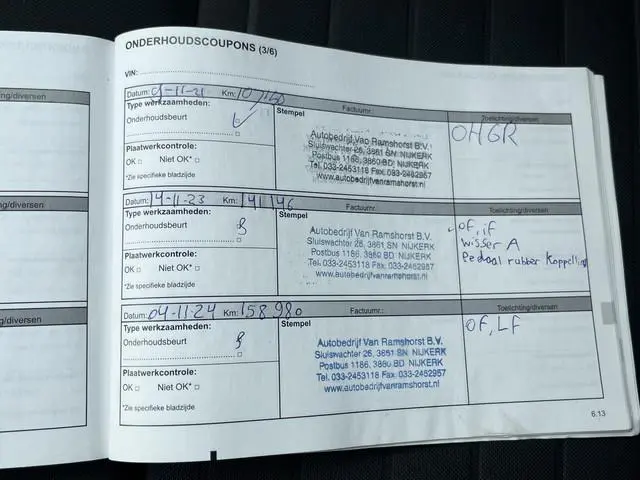 ONDERHOUDSCOUPONS (3/6)
VIN:
ng/diversen
Datum: -11-21 Km:
Factuurnr.:
Toelichting/diversen
Type werkzaamheden:
Stempel
Onderhoudsbeurt
OHGR
Autobedrijf Van Ramshorst B.V.
Sluiswachter 26, 3861 SN NIJKERK
Postbus 1186, 3860 BD NIJKERK
Tel. 033-2453118 Fax. 033-2462957
www.autobedrijfvanramshorst.nl
Plaatwerkcontrole:
OK □ Niet OK* □
*Zie specifieke bladzijde
g/diversen
Datum: 14-11-23 Km: 141 146
Factuurnr.:
Toelichting/diversen
Type werkzaamheden:
Stempel
Onderhoudsbeurt
OF, if
wisser A
Pedaal rubber Koppeling
Autobedrijf Van Ramshorst B.V.
Sluiswachter 26, 3861 SN NIJKERK
Postbus 1186, 3860 BD NIJKERK
Tel. 033-2453118 Fax. 033-2462957
www.autobedrijfvanramshorst.nl
Plaatwerkcontrole:
OK □ Niet OK* □
*Zie specifieke bladzijde
g/diversen
Datum: 04-11-24 Km: 158.980
Factuurnr.:
Toelichting/diversen
Type werkzaamheden:
Stempel
Onderhoudsbeurt
OF, LF
Autobedrijf Van Ramshorst B.V.
Sluiswachter 26, 3861 SN NIJKERK
Postbus 1186, 3860 BD NIJKERK
Tel. 033-2453118 Fax. 033-2462957
www.autobedrijfvanramshorst.nl
Plaatwerkcontrole:
OK □ Niet OK* □
*Zie specifieke bladzijde
6.13